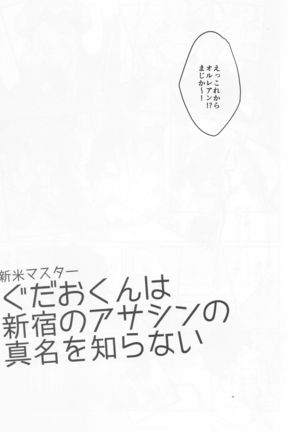 えっこれから
オルレアン!?
まじか〜!
新米マスター
ぐだおくんは
新宿のアサシンの
真名を知らない